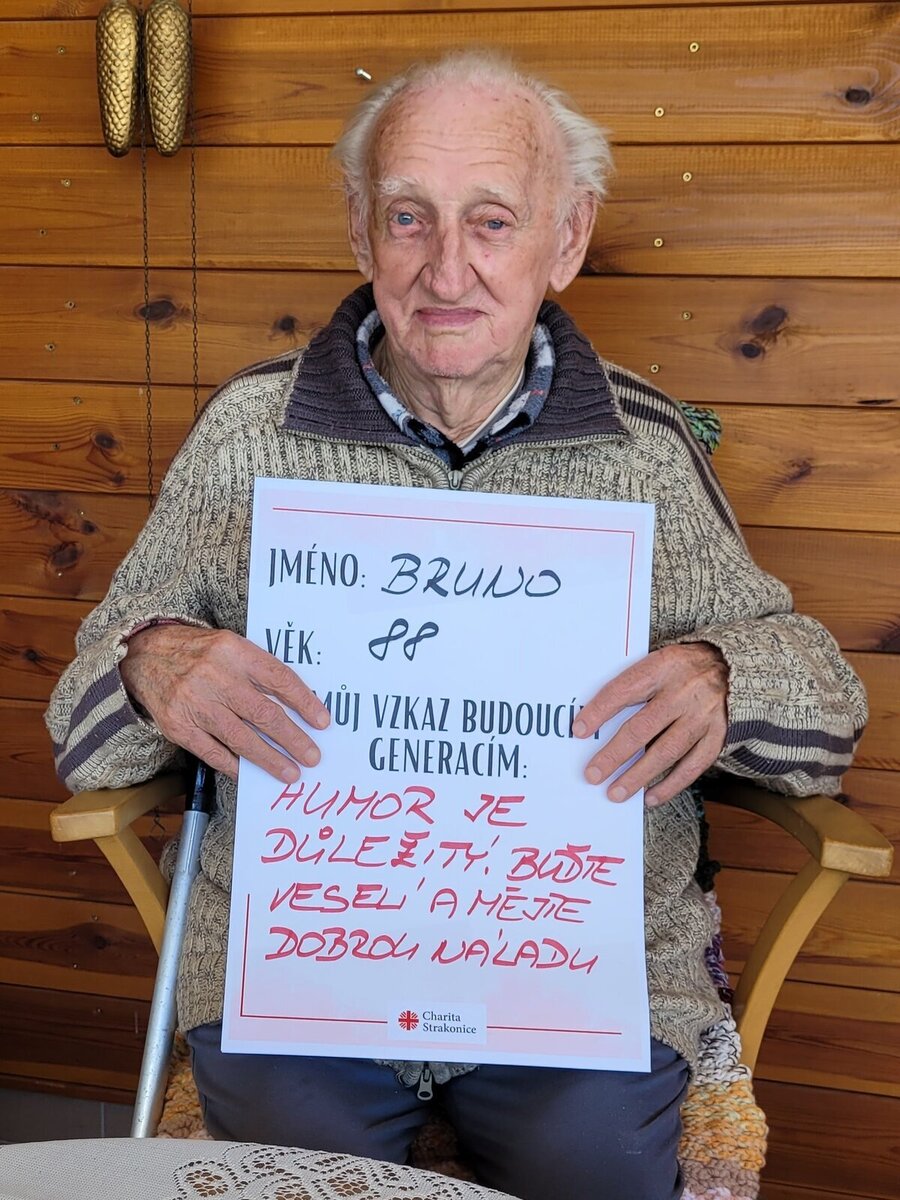 JMÉNO: BRUNO
VĚK: 88
MŮJ VZKAZ BUDOUCÍM
GENERACÍM:
HUMOR JE
DŮLEŽITÝ. BUĎTE
VESELÍ A MĚJTE
DOBROU NÁLADU
Charita
Strakonice